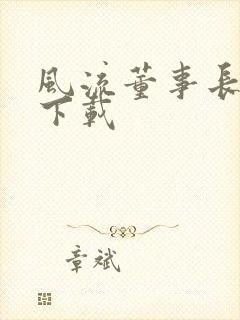 風流董事長
下載
章斌